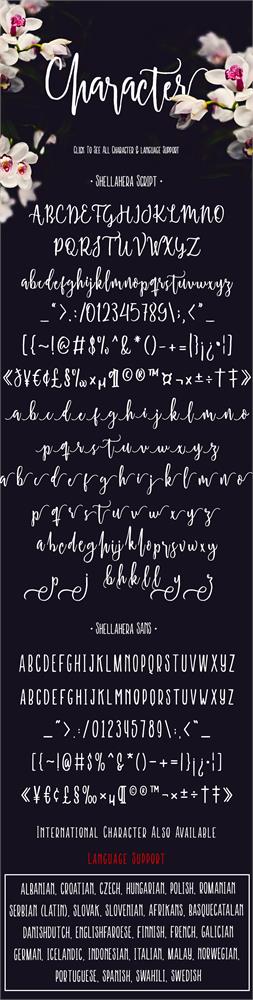 Character
Click To See All Character & Language Support
· Shellahera Script ·
ABCDEFGHIJKLMNO
PQRSTUVWXYZ
abcdefghijklmnopqrstuvwxyz
_“>.:/0123456789\;,<”_
[{~!@#$%^&*()-+=|}¡¿·¦]
a b c d e f g h i j k l m n o
p q r s t u v w x y z
a b c d e f g h i j k l m n o
p q r s t u v w x y z
· Shellahera Sans ·
ABCDEFGHIJKLMNOPQRSTUVWXYZ
ABCDEFGHIJKLMNOPQRSTUVWXYZ
_“>.:/0123456789\;,<”_
[{~!@#$%^&*()-+=|}¡¿·¦]
International Character Also Available
Language Support
ALBANIAN, CROATIAN, CZECH, HUNGARIAN, POLISH, ROMANIAN
SERBIAN (LATIN), SLOVAK, SLOVENIAN, AFRIKANS, BASQUECATALAN
DANISHDUTCH, ENGLISHFAROESE, FINNISH, FRENCH, GALICIAN
GERMAN, ICELANDIC, INDONESIAN, ITALIAN, MALAY, NORWEGIAN,
PORTUGUESE, SPANISH, SWAHILI, SWEDISH